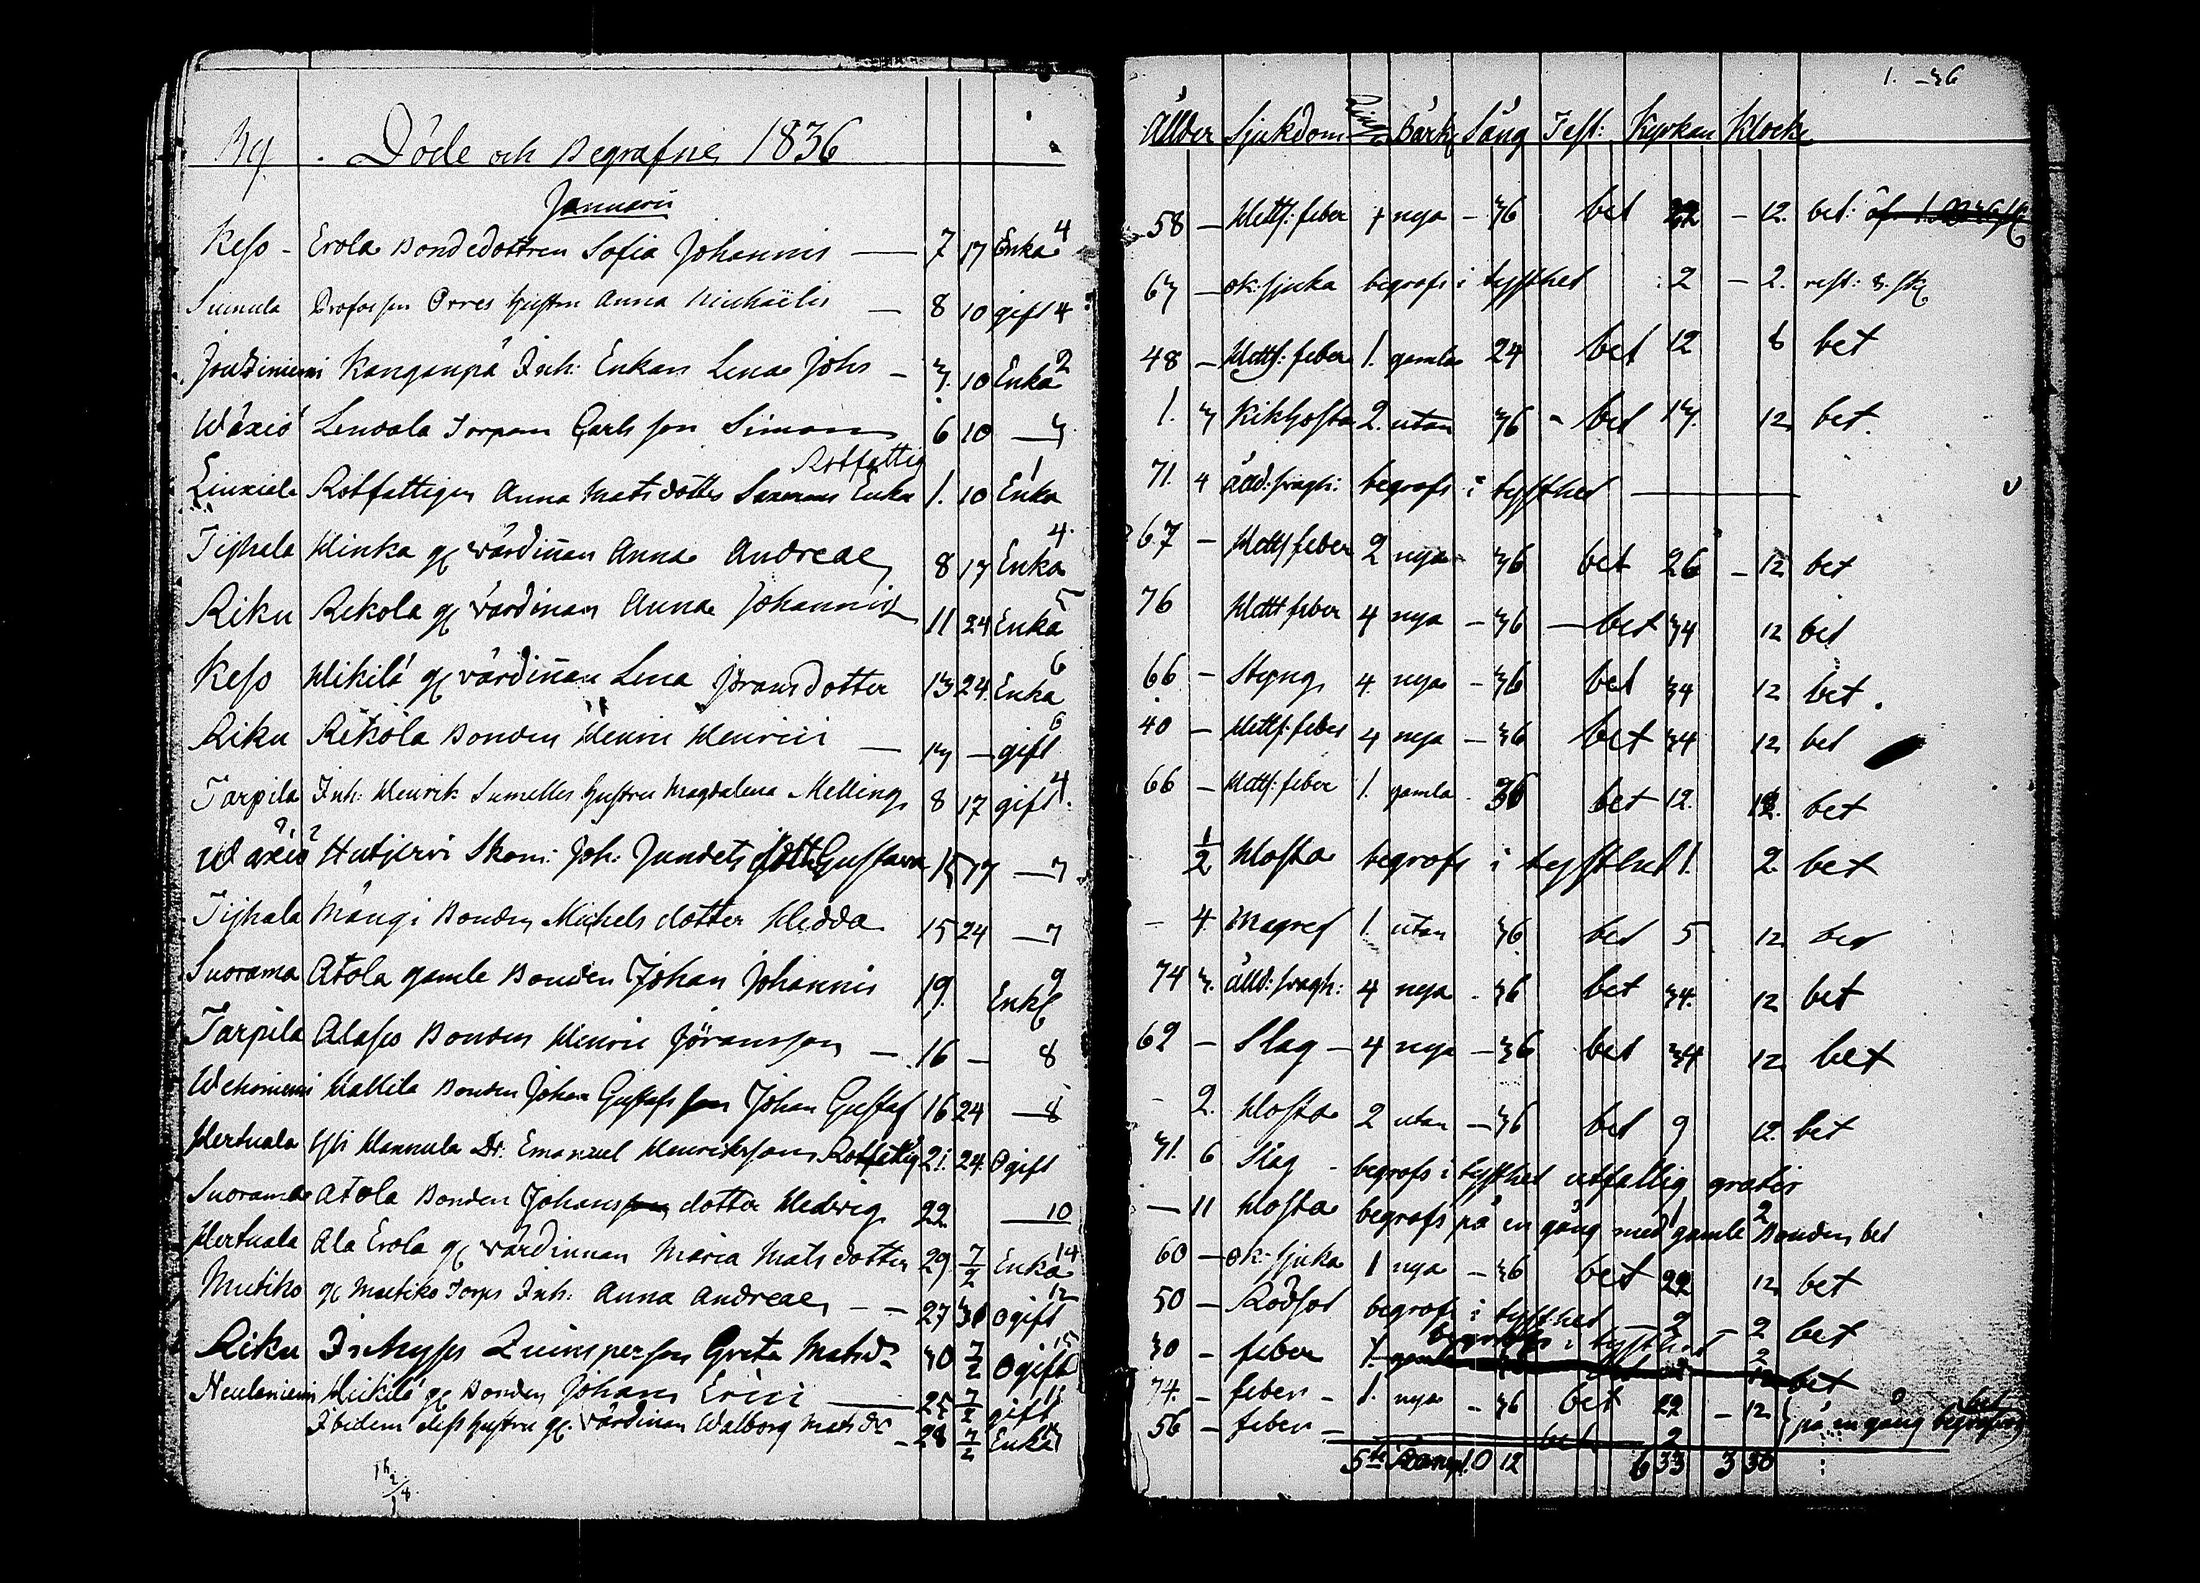 By . Döde och Begrafne 1836
Januarii
Keso - Erola Bondedottren Sofia Johannis — 7 17 Enka 4
Simula Orres hustru Anna Michaelis — 8 10 gift 4
Joutziniemi Kangaupä Inh: Enkan Lena Johs - 7. 10 Enka 2
Wäxiö Lendala Torpar Carls son Simon 6 10 — 7
Rotfattig
Liuxiala Rotfattigen Anna Mats dotter Enka 1. 10 Enka 1
Tijhala Hinka gl värdinnan Anna Andreae 8 17 Enka 4.
Riku Rekola gl värdinan Anna Johannis 11 24 Enka 5
Keso Mikilä gl värdinnan Lena Jöransdotter 13 24. Enka 6
Riku Rekola Bonden Henric Henrici — 17 — gift 6
Tarpila Inh: Henrik Sumelles hustru Magdalena Melling 8 17 gift 4.
Wäxiö Hutjervi Skom: Joh: Jundets dott: Gustava 15 17 — 7
Tijhala Mångi Bonden Michels dotter Hedda 15 24 — 7
Suorama Atola gamle Bonden Johan Johannis 19. Enkl 9
Tarpila Alases Bonden Henric Jöransson — 16 — 8
Wehoniemi Mattila Bonden Johan Gustafs son Johan Gustaf 16 24 — 8
Hertuala Yli Hannula Dr: Emanuel Henriksson Rotfattig 21. 24 Ogift
Suorama Atola Bonden Johans son dotter Hedvig 22 — 10
Hertuala Ala Erola gl värdinnan Maria Mats dotter 29 7/2 Enka 14
Mutiko gl Mutiko Torps Inh: Anna Andreae - - 27 31 Ogift 12
Riku Greta Matsdr 30 7/2 Ogift 15
Neulaniemi Mikilä gl Bonden Johan Erici — 25 7/2 gift
Ibidem dess hustru gl. värdinan Walborg Mats dr - 28 7/2 Enka
1. -36
Ållder Sjukdom Ringn Bårkl Sång Test: Kyrkan Klock
58 — Hetts: feber 4 nya - 36 bet 22 - 12. bet:
67 — ok: sjuka begrofs i tysthet 2 - 2. rest: 8. sk
48 — Hetts: feber 1. gamla 24 bet 12 6 bet
1. 7 Kikhosta 2. utan 36 - bet 17. 12 bet.
71. 4 ålld: svagh: begrofs i tysthet —
67 - Hetts feber 2 nya 36 bet 26 - 12 bet
76 Hetts feber 4 nya - 36 - bet 34 12 bet
66 - Styng 4 nya - 36 bet 34 12 bet.
40 - Hetts: feber 4 nya - 36 bet 34 12 bet
66 - Hetts: feber 1. gamla - 36 bet 12. 12. bet
1/2 Hosta begrofs i tysthet 1. 2 bet
- 4. Magref 1. utan 36 bet 5 12 bet
74 7. ålld: svagh: 4 nya - 36 bet 34. 12 bet
62 - Slag - 4 nya - 36 bet 34 12 bet
- 2. Hosta 2 utan - 36 bet 9 12. bet
71. 6 Slag - begrofs i tysthet utfattig gratis
— 11 Hosta begrofs på en gång med gamle Bonden bet
60 — ok: sjuka 1 nya - 36 bet 22 12 bet
50 - Rödsot begrofs i tysthet — 2 - 2 bet
30 - feber begrofs i tysthet 2 bet
74. - feber - 1. nya - 36 bet 22 - 12 bet
56 - feber - bet 2 på en gång begrafne
5te 10 12 6 33 3 30